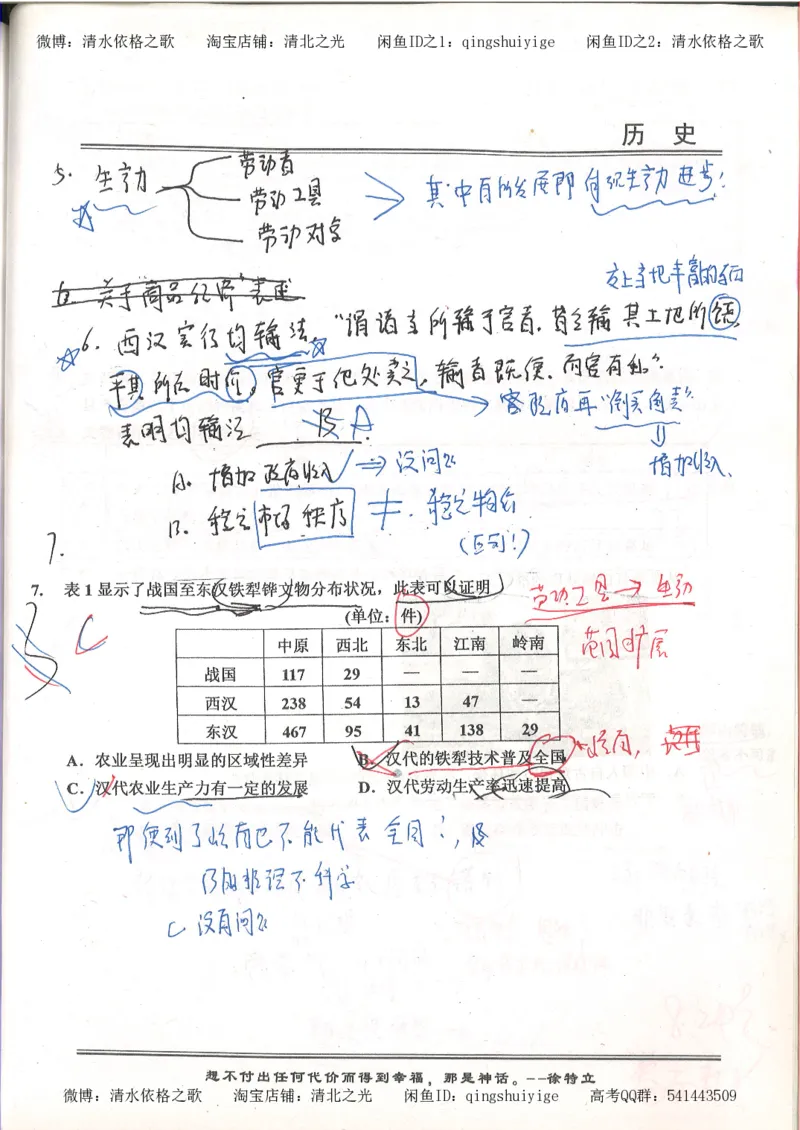 微博：清水依格之歌 淘宝店铺：清北之光 闲鱼ID之1：qingshuiyige 闲鱼ID之2：清水依格之歌
历 史
5. 生产力
劳动者
劳动工具
劳动对象
其中有所发展即体现生产力进步！
交上当地丰富的东西
6. 西汉实行均输法，"谓诸当所输于官者，皆令输其土地所饶，
平其所在时价，官更于他处卖之，输者既便，而官有利".
官府有再"倒买倒卖"
增加收入、
表明均输法 B A
A. 增加政府收入 ⇒ 没问题
B. 稳定市场秩序 ≠ 稳定物价
(区别！)
7.
7. 表1显示了战国至东汉铁犁铧文物分布状况，此表可以证明
劳动工具 → 生动
(单位：件)
范围扩展
中原 西北 东北 江南 岭南
战国 117 29 — — —
西汉 238 54 13 47 —
东汉 467 95 41 138 29
A．农业呈现出明显的区域性差异 B．汉代的铁犁技术普及全国
岭南，
C．汉代农业生产力有一定的发展 D．汉代劳动生产率迅速提高
C
即便到了岭南也不能代表全国！，
仍用推理不科学
C 没有问题
想不付出任何代价而得到幸福，那是神话。--徐特立
微博：清水依格之歌 淘宝店铺：清北之光 闲鱼ID：qingshuiyige 高考QQ群：541443509